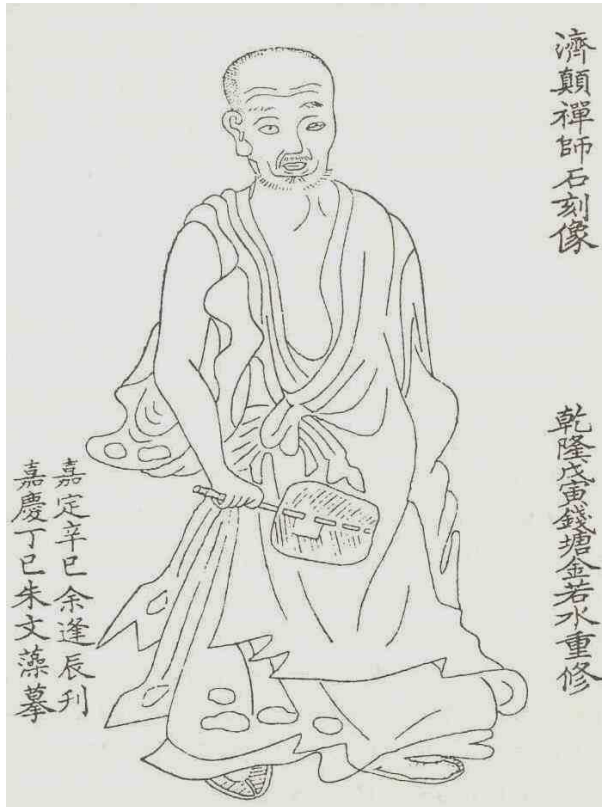 濟顛禪師石刻像
乾隆戊寅錢塘金若水重修
嘉定辛巳余逢辰刊
嘉慶丁巳朱文藻摹